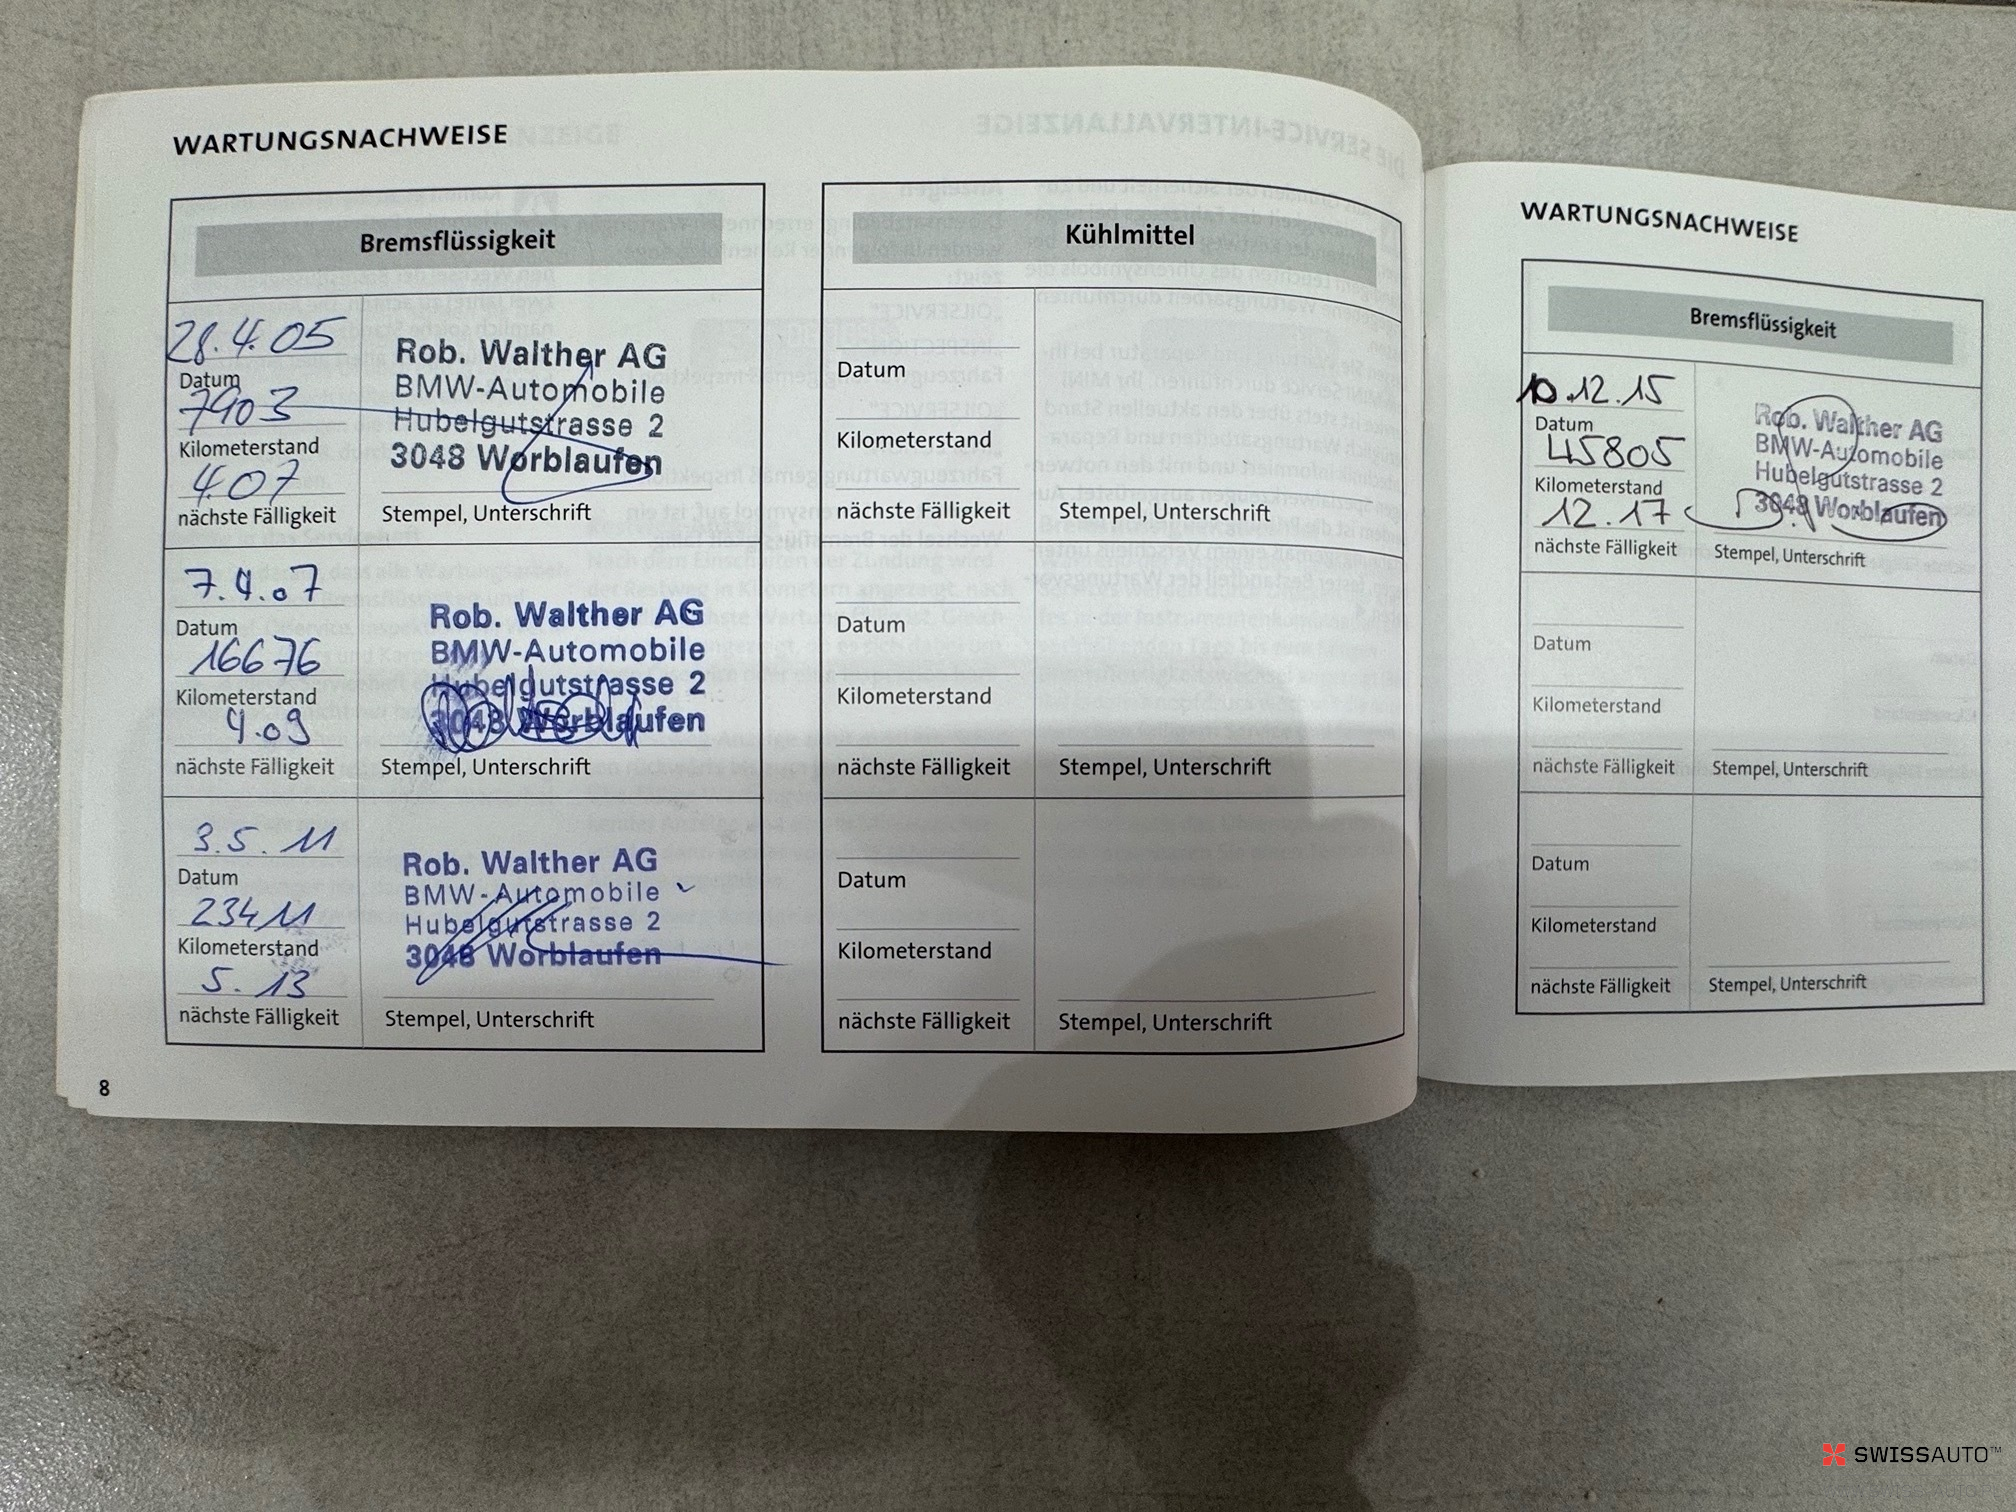 WARTUNGSNACHWEISE
Bremsflüssigkeit
28.4.05
Datum
7903
Kilometerstand
4.07
nächste Fälligkeit
Rob. Walther AG
BMW-Automobile
Hubelgutstrasse 2
3048 Worblaufen
Stempel, Unterschrift
7.4.07
Datum
16676
Kilometerstand
4.09
nächste Fälligkeit
Rob. Walther AG
BMW-Automobile
Hubelgutstrasse 2
3048 Worblaufen
Stempel, Unterschrift
3.5.11
Datum
23411
Kilometerstand
5.13
nächste Fälligkeit
Rob. Walther AG
BMW-Automobile
Hubelgutstrasse 2
3048 Worblaufen
Stempel, Unterschrift
8
Kühlmittel
Datum
Kilometerstand
nächste Fälligkeit
Stempel, Unterschrift
Datum
Kilometerstand
nächste Fälligkeit
Stempel, Unterschrift
Datum
Kilometerstand
nächste Fälligkeit
Stempel, Unterschrift
WARTUNGSNACHWEISE
Bremsflüssigkeit
10.12.15
Datum
45805
Kilometerstand
12.17
nächste Fälligkeit
Rob. Walther AG
BMW-Automobile
Hubelgutstrasse 2
3048 Worblaufen
Stempel, Unterschrift
Datum
Kilometerstand
nächste Fälligkeit
Stempel, Unterschrift
Datum
Kilometerstand
nächste Fälligkeit
Stempel, Unterschrift
SWISSAUTO™